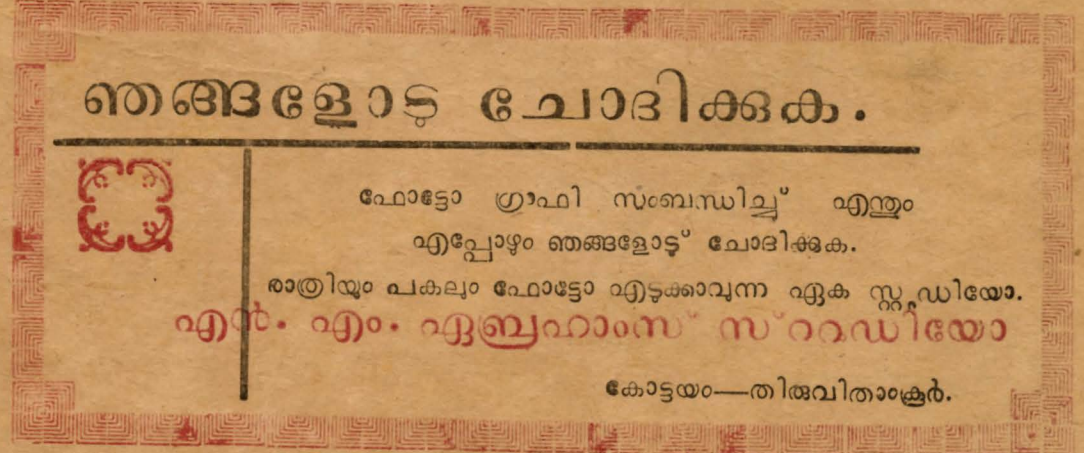 ഞങ്ങളോടു ചോദിക്കുക.
ഫോട്ടോ ഗ്രാഫി സംബന്ധിച്ച് എന്തും
എപ്പോഴും ഞങ്ങളോടു് ചോദിക്കുക.
രാത്രിയും പകലും ഫോട്ടോ എടുക്കാവുന്ന ഏക സ്റ്റുഡിയോ.
എൻ. എം. ഏബ്രഹാംസ് സ്ററുഡിയോ
കോട്ടയം—തിരുവിതാംകൂർ.